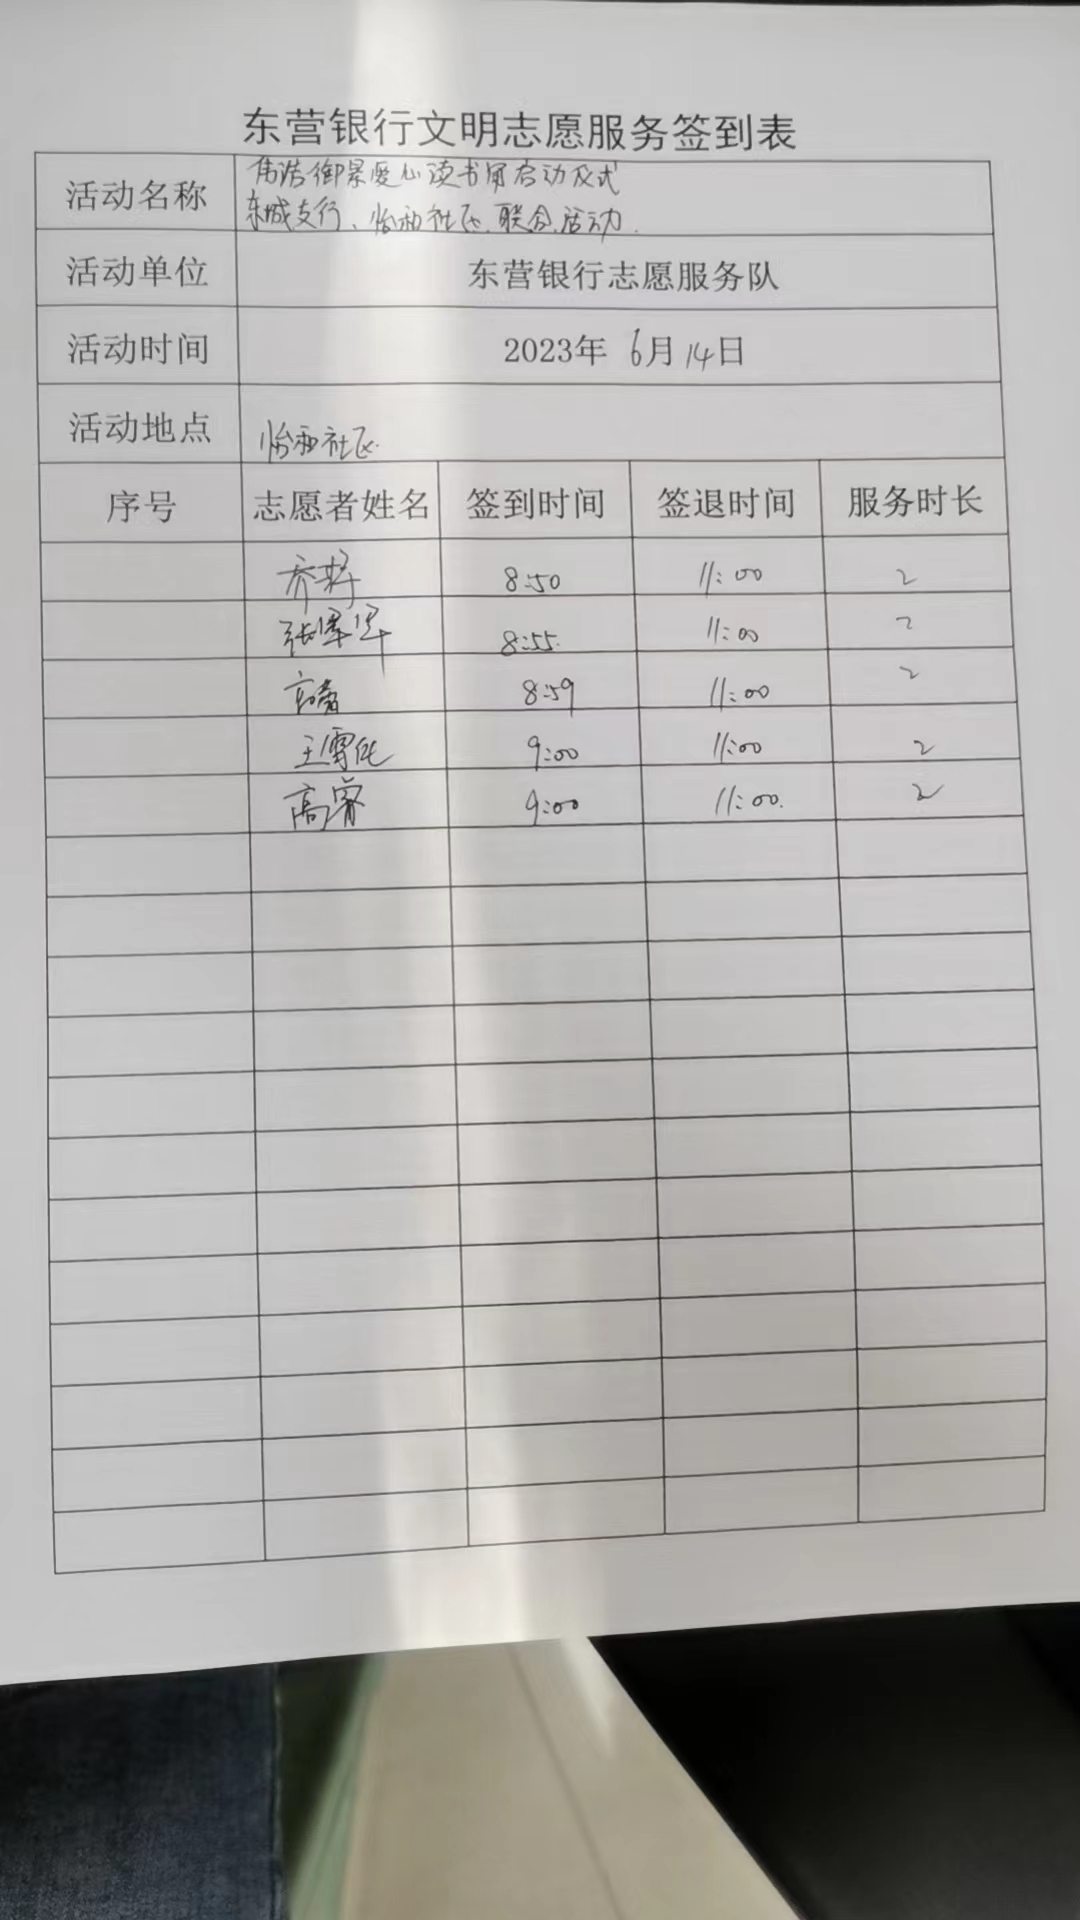 东营银行文明志愿服务签到表
活动名称 伟浩御景爱心读书角启动仪式
东城支行、怡和社区联合活动.
活动单位 东营银行志愿服务队
活动时间 2023年 6月14日
活动地点 怡和社区.
序号 志愿者姓名 签到时间 签退时间 服务时长
8:50 11:00 2
8:55 11:00 2
8:59 11:00 2
9:00 11:00 2
高睿 9:00 11:00 2